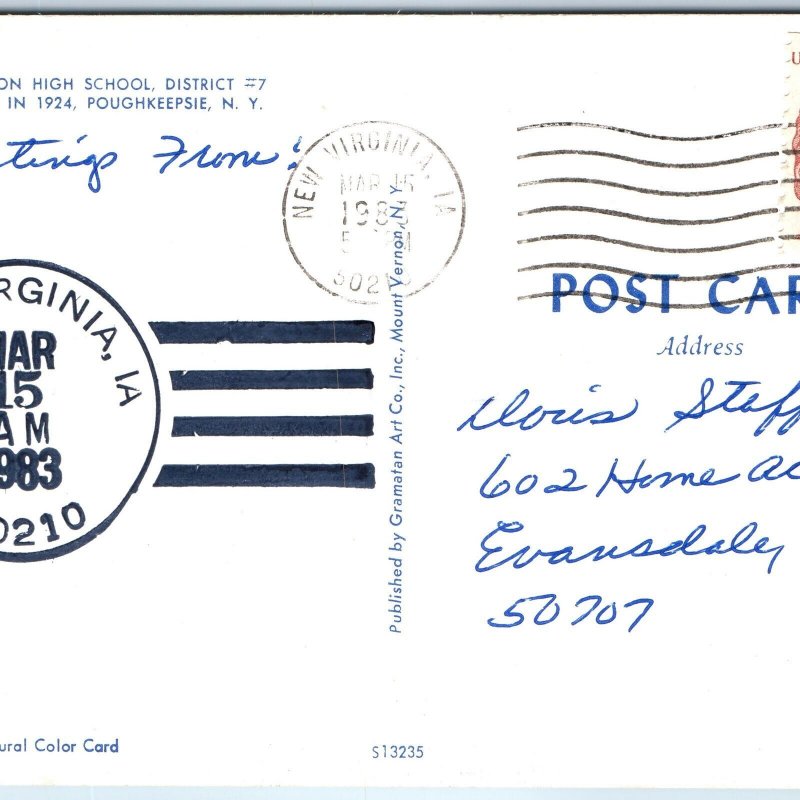 ON HIGH SCHOOL, DISTRICT #7
IN 1924, POUGHKEEPSIE, N. Y.
tings From:
NEW VIRGINIA, IA
MAR 15
1983
5 PM
50210
RGINIA, IA
MAR
15
AM
1983
0210
Published by Gramatan Art Co., Inc., Mount Vernon, N.Y.
U
POST CAR
Address
Doris Staff
602 Home
Evansdale,
50707
ural Color Card
S13235